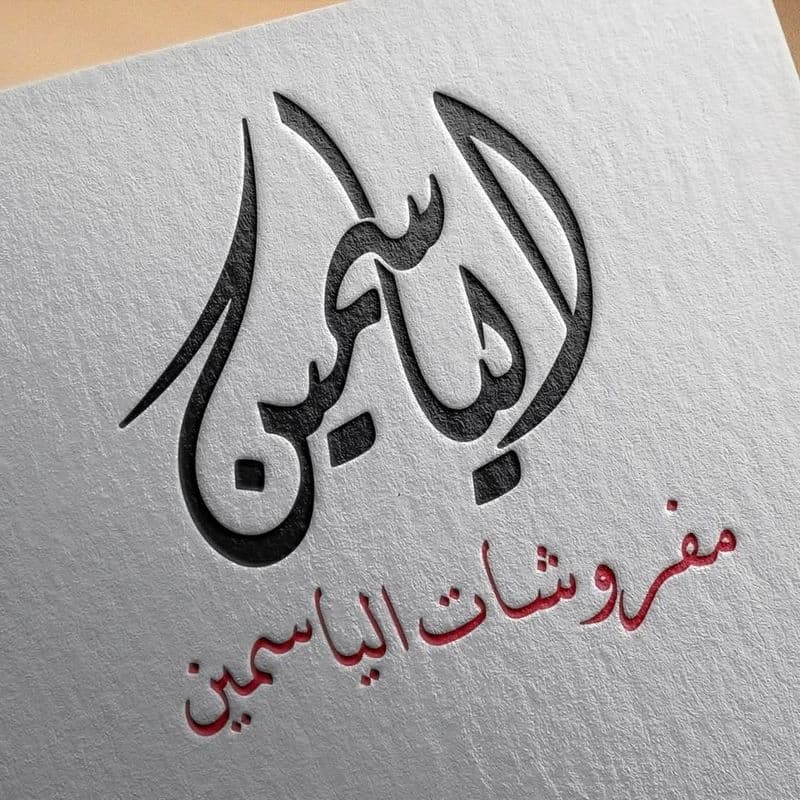 الياسمين
مفروشات الياسمين